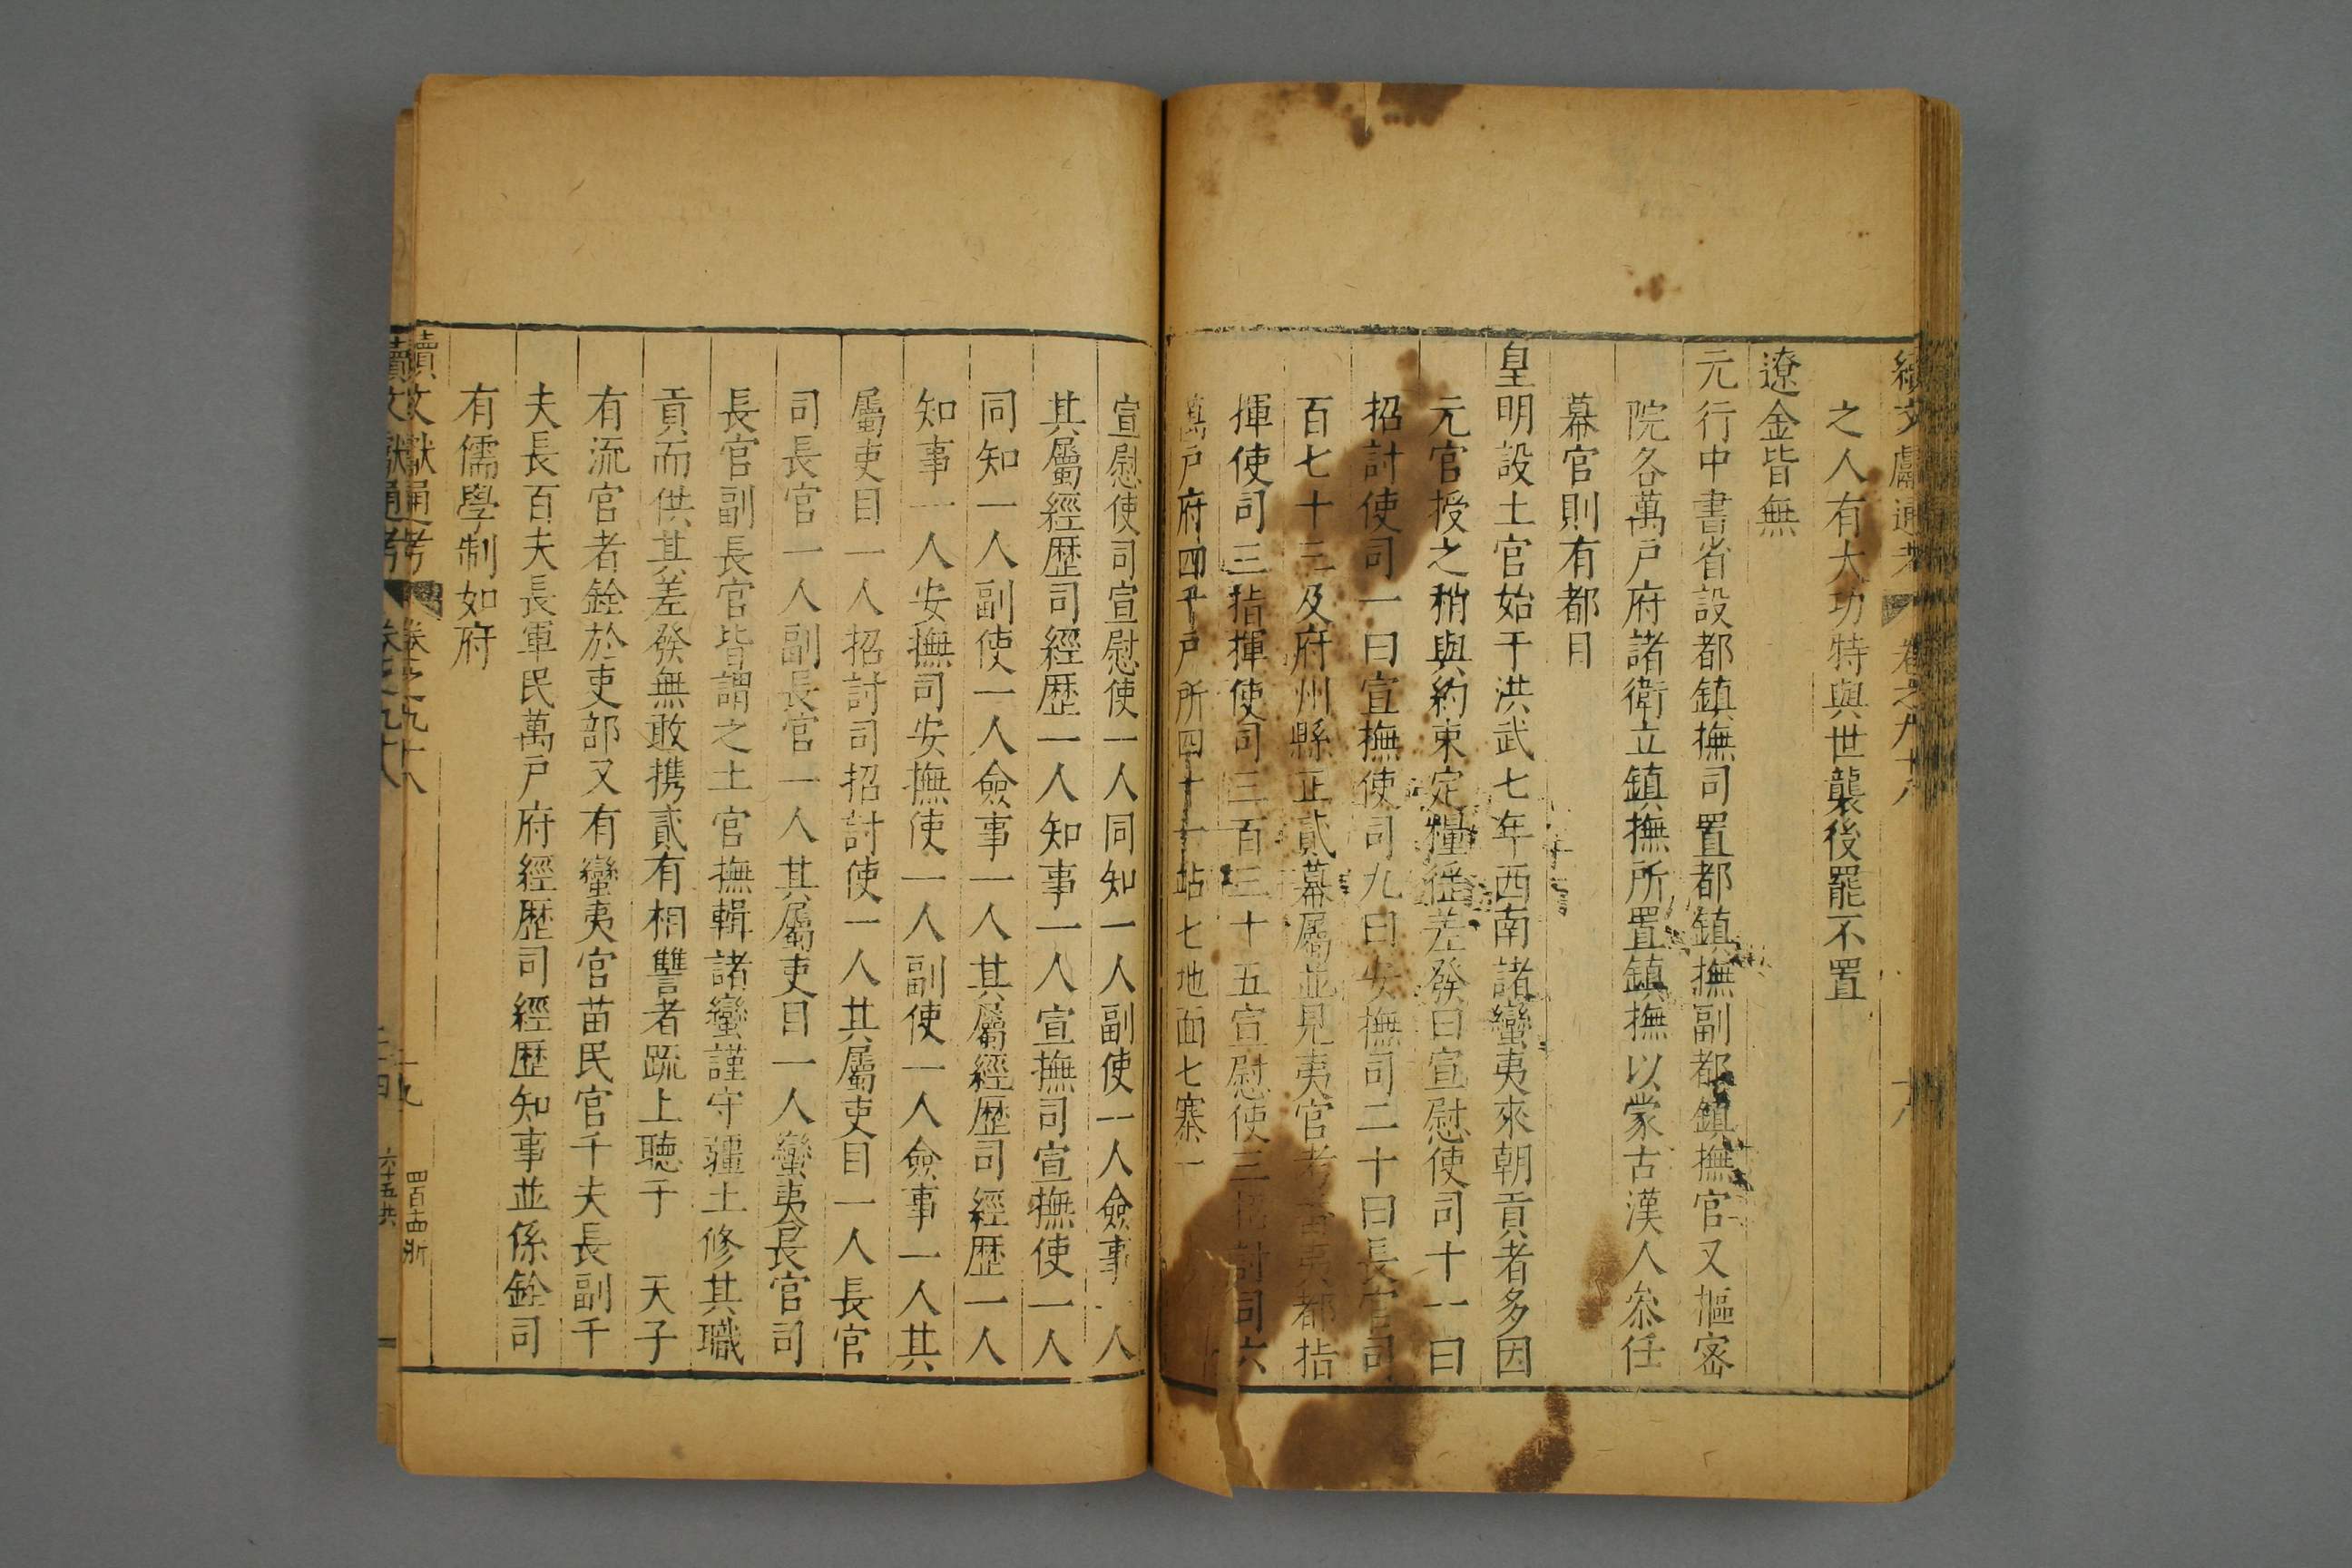 續文獻通考 卷之九十八 十八
之人有大功特與世襲後罷不置
遼金皆無
元行中書省設都鎮撫司置都鎮撫副都鎮撫官又樞密
院各萬戶府諸衛立鎮撫所置鎮撫以蒙古漢人叅任
幕官則有都目
皇明設土官始于洪武七年西南諸蠻夷來朝貢者多因
元官授之稍與約束定糧徭差發曰宣慰使司十一曰
招討使司一曰宣撫使司九曰安撫司二十曰長官司
百七十三及府州縣正貳幕屬並見夷官考 都指
揮使司三指揮使司三百三十五宣慰使三招討司六
萬戶府四千戶所四十一站七地面七寨一
宣慰使司宣慰使一人同知一人副使一人僉事一人
其屬經歷司經歷一人知事一人宣撫司宣撫使一人
同知一人副使一人僉事一人其屬經歷司經歷一人
知事一人安撫司安撫使一人副使一人僉事一人其
屬吏目一人招討司招討使一人其屬吏目一人長官
司長官一人副長官一人其屬吏目一人蠻夷長官司
長官副長官皆謂之土官撫輯諸蠻謹守疆土修其職
貢而供其差發無敢携貳有相讐者䟽上聽于 天子
有流官者銓於吏部又有蠻夷官苗民官千夫長副千
夫長百夫長軍民萬戶府經歷司經歷知事並係銓司
有儒學制如府
續文獻通考 卷之九十八 十九 四百十四 浙
續文獻通考 卷之九十八